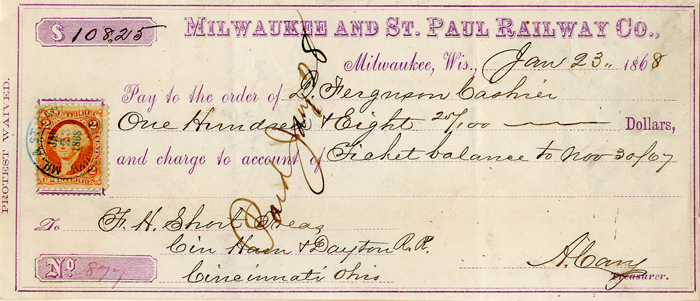 $ 108,25
MILWAUKEE AND ST. PAUL RAILWAY CO.,
Milwaukee, Wis., Jan 23, 1868
Pay to the order of D. Ferguson Cashier
One Hundred & Eight 25/100 Dollars,
and charge to account of Ticket balance to Nov 30/67
To F. H. Short Treas
Cin Ham & Dayton R. R.
Cincinnati Ohio
No 877
A. Cary
Treasurer.
PROTEST WAIVED.
Paid Jany 8
JAN
23
1868